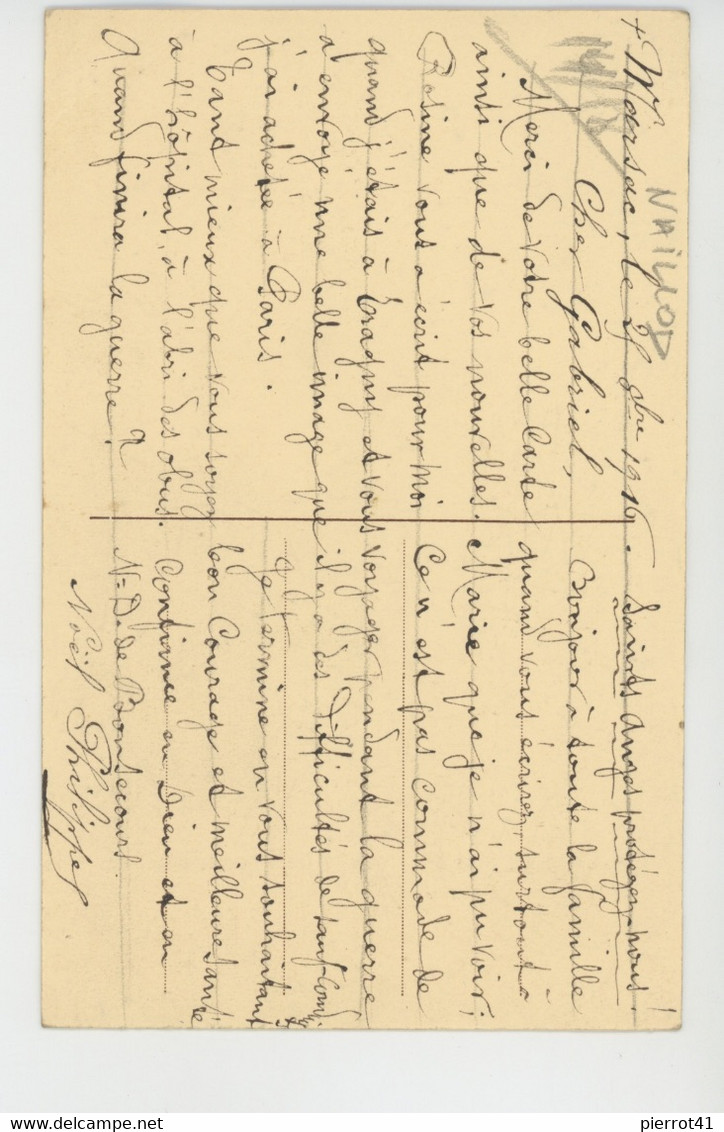 + Marsac, le 25 bre 1916. Saints Anges protégez-nous!
Cher Gabriel,
Merci de votre belle Carte
ainsi que de vos nouvelles.
Rosine vous a écrit pour moi
quand j'étais à Eragny et vous
a envoyé une belle image que
j'ai achetée à Paris.
Tant mieux que vous soyez
à l'hôpital, à l'abri des obus.
Quand finira la guerre?
Bonjour à toute la famille
quand vous écrirez, surtout à
Marie que je n'ai pu voir;
Ce n'est pas commode de
voyager pendant la guerre
il y a des difficultés de sauf-Cond.
Je termine en vous souhaitant
bon Courage et meilleure santé
Confiance en Dieu et en
N=D. de Bonsecours.
Noël Philippe
pierrot41
delcampe.net